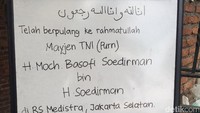 إنا لله وإنا إليه راجعون
Telah berpulang ke rahmatullah
Mayjen TNI (Purn)
H Moch Basofi Soedirman
bin
H Soedirman
di RS Medistra, Jakarta Selatan.
detikcom